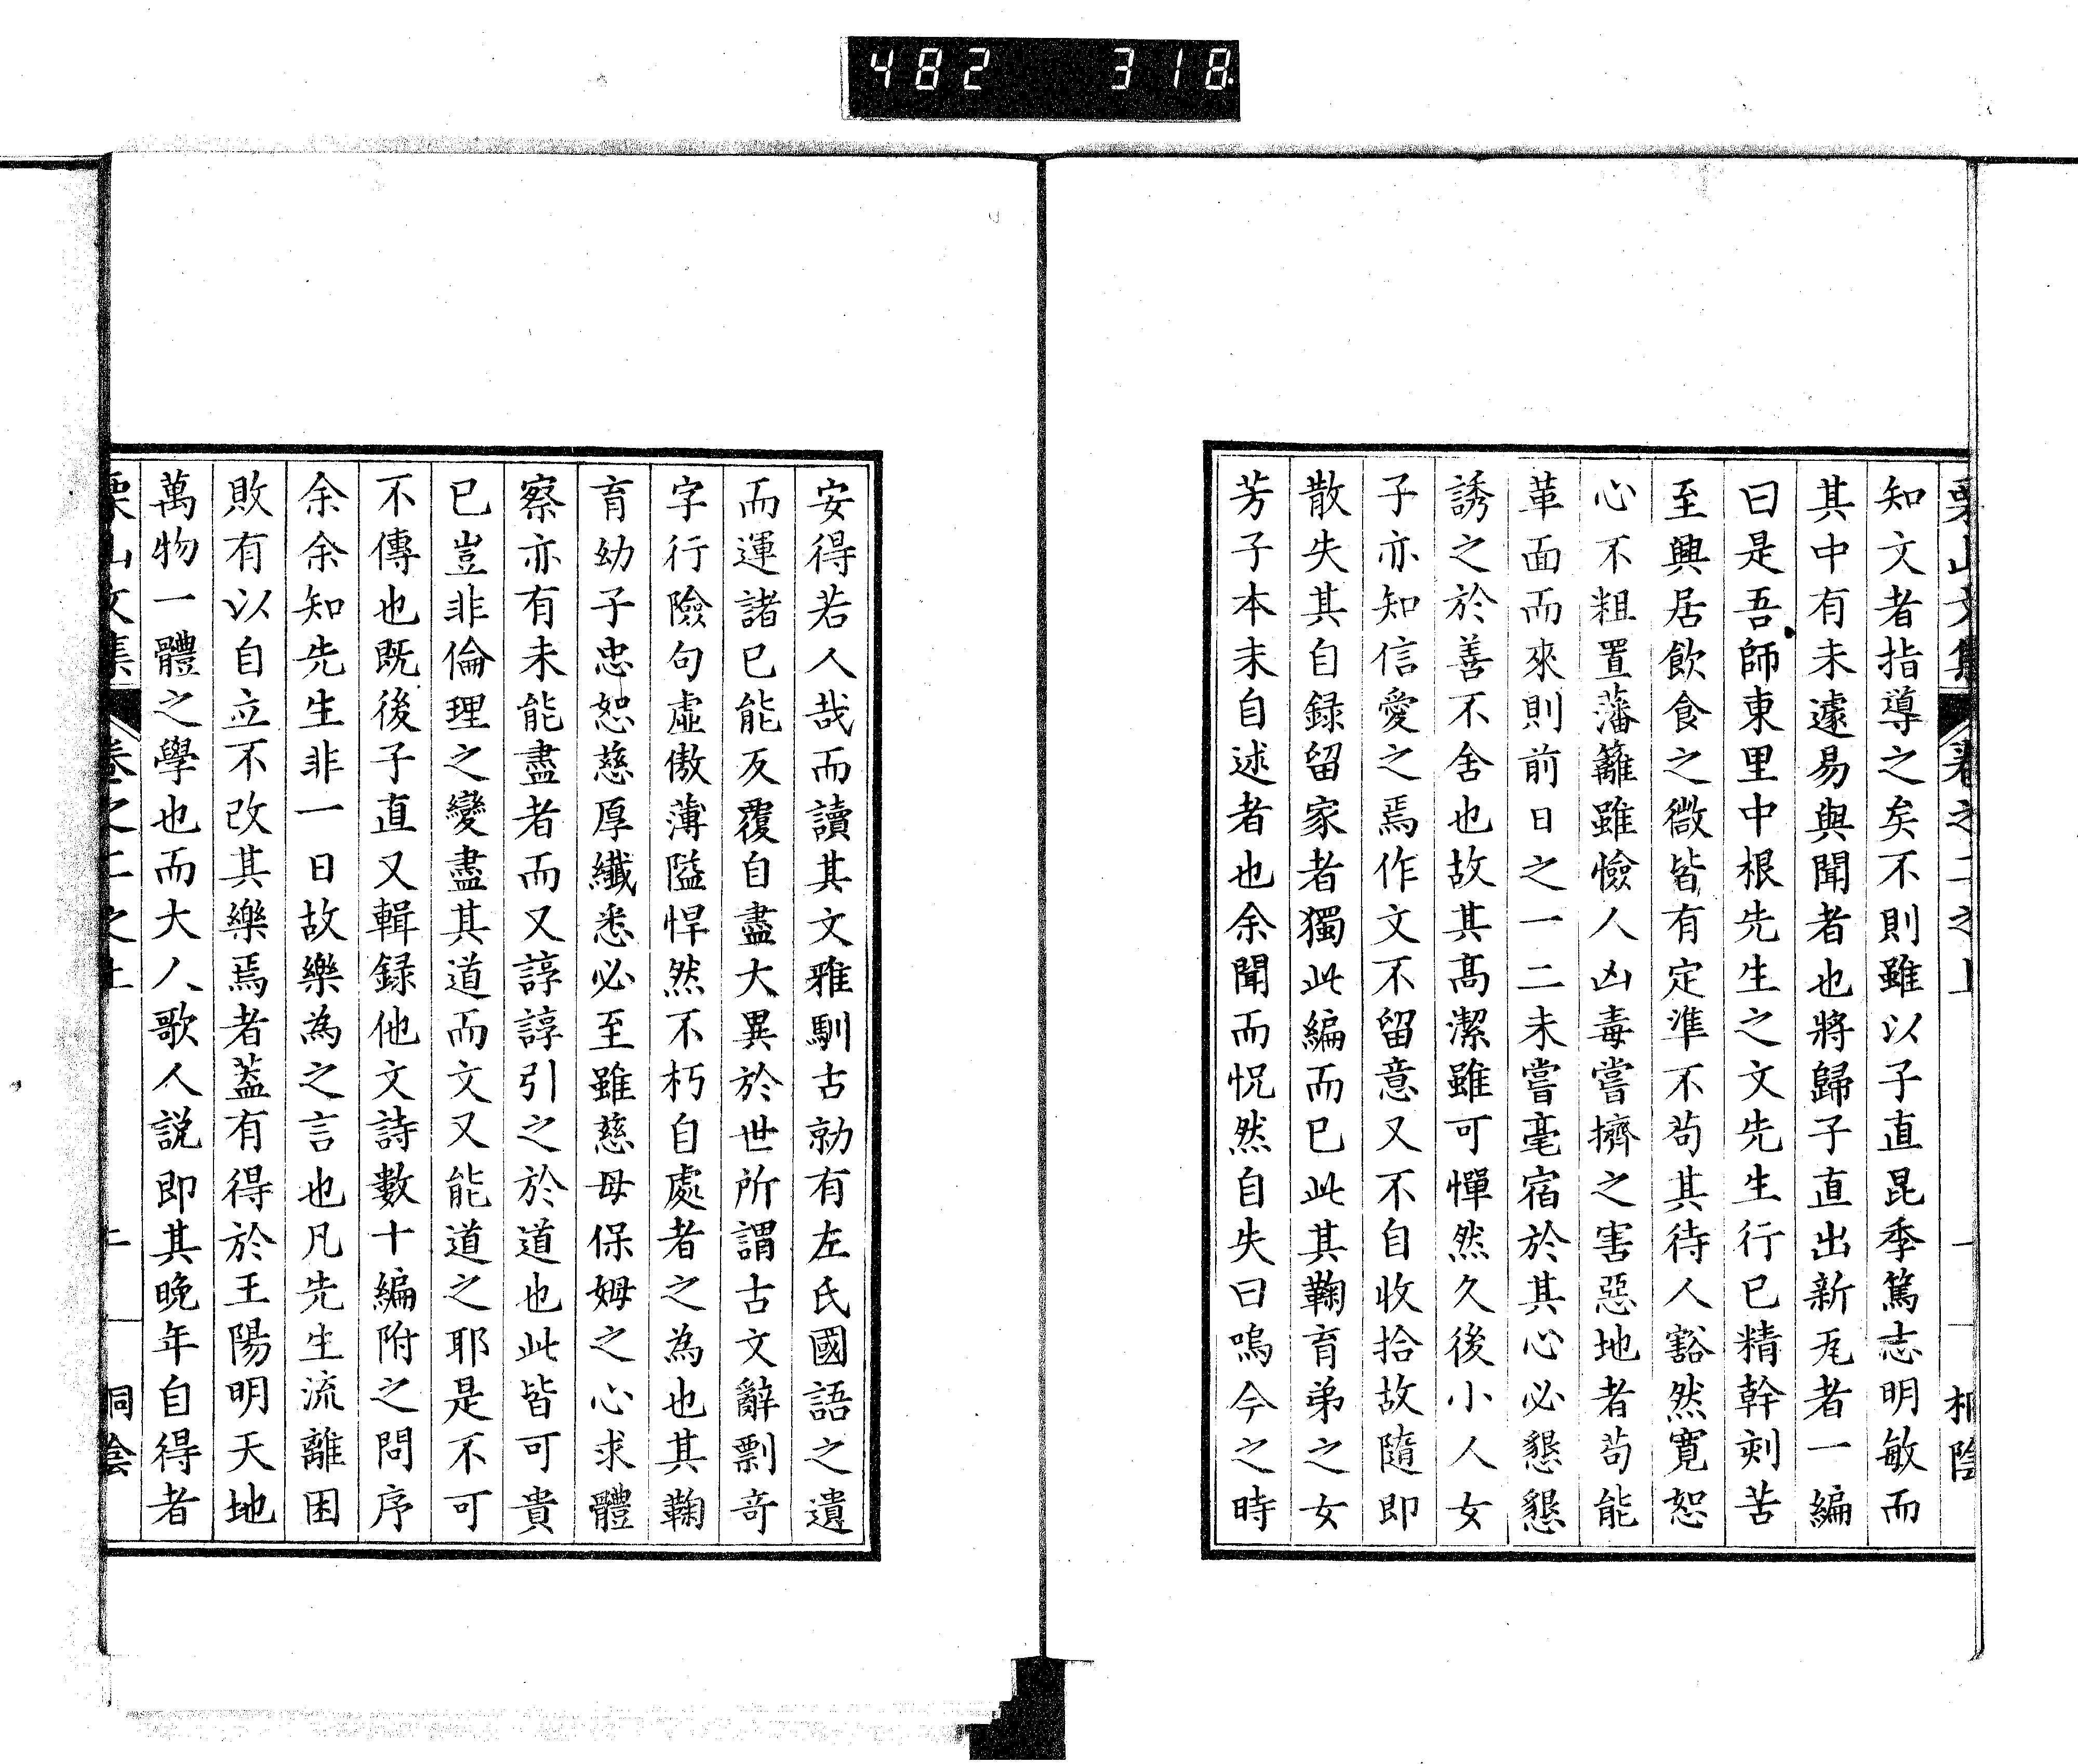 482 318
栗山文集 卷之二之上 十 桐陰
知文者指導之矣不則雖以子直昆季篤志明敏而
其中有未遽易與聞者也將歸子直出新刓者一編
曰是吾師東里中根先生之文先生行已精幹刻苦
至興居飲食之微皆有定準不苟其待人豁然寬恕
心不粗置藩籬雖憸人凶毒嘗擠之害惡地者苟能
革面而來則前日之一二未嘗毫宿於其心必懇懇
誘之於善不舍也故其高潔雖可憚然久後小人女
子亦知信愛之焉作文不留意又不自收拾故隨即
散失其自録留家者獨此編而已此其鞠育弟之女
芳子本末自述者也余聞而怳然自失曰嗚今之時
安得若人哉而讀其文雅馴古勁有左氏國語之遺
而運諸已能反覆自盡大異於世所謂古文辭剽奇
字行險句虛傲薄隘悍然不朽自處者之為也其鞠
育幼子忠恕慈厚纖悉必至雖慈母保姆之心求體
察亦有未能盡者而又諄諄引之於道也此皆可貴
已豈非倫理之變盡其道而文又能道之耶是不可
不傳也既後子直又輯録他文詩數十編附之問序
余余知先生非一日故樂為之言也凡先生流離困
敗有以自立不改其樂焉者葢有得於王陽明天地
萬物一體之學也而大人歌人説即其晚年自得者
栗山文集 卷之二之上 十一 桐陰